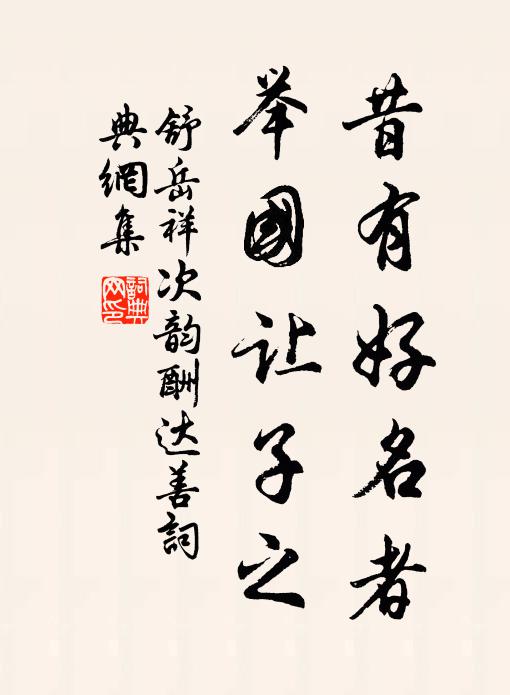 昔有好名者
举國让子之
舒岳祥次韵酬达善詞
典網集
詞典网印